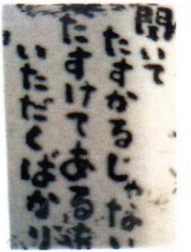 聞いて
たすかるじゃない
たすけてある
いただくばかり